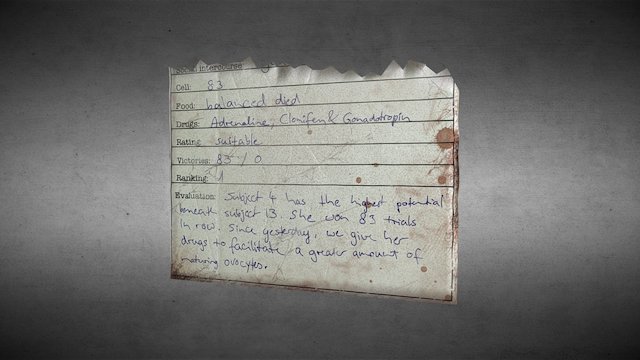 Social intercourse
Cell: 83
Food: balanced died
Drugs: Adrenaline, Clomifen & Gonadotropin
Rating: suitable
Victories: 83 / 0
Ranking:
Evaluation: Subject 4 has the highest potential
beneath subject 13. She won 83 trials
in row. Since yesterday, we give her
drugs to facilitate a greater amount of
maturing ovocytes.